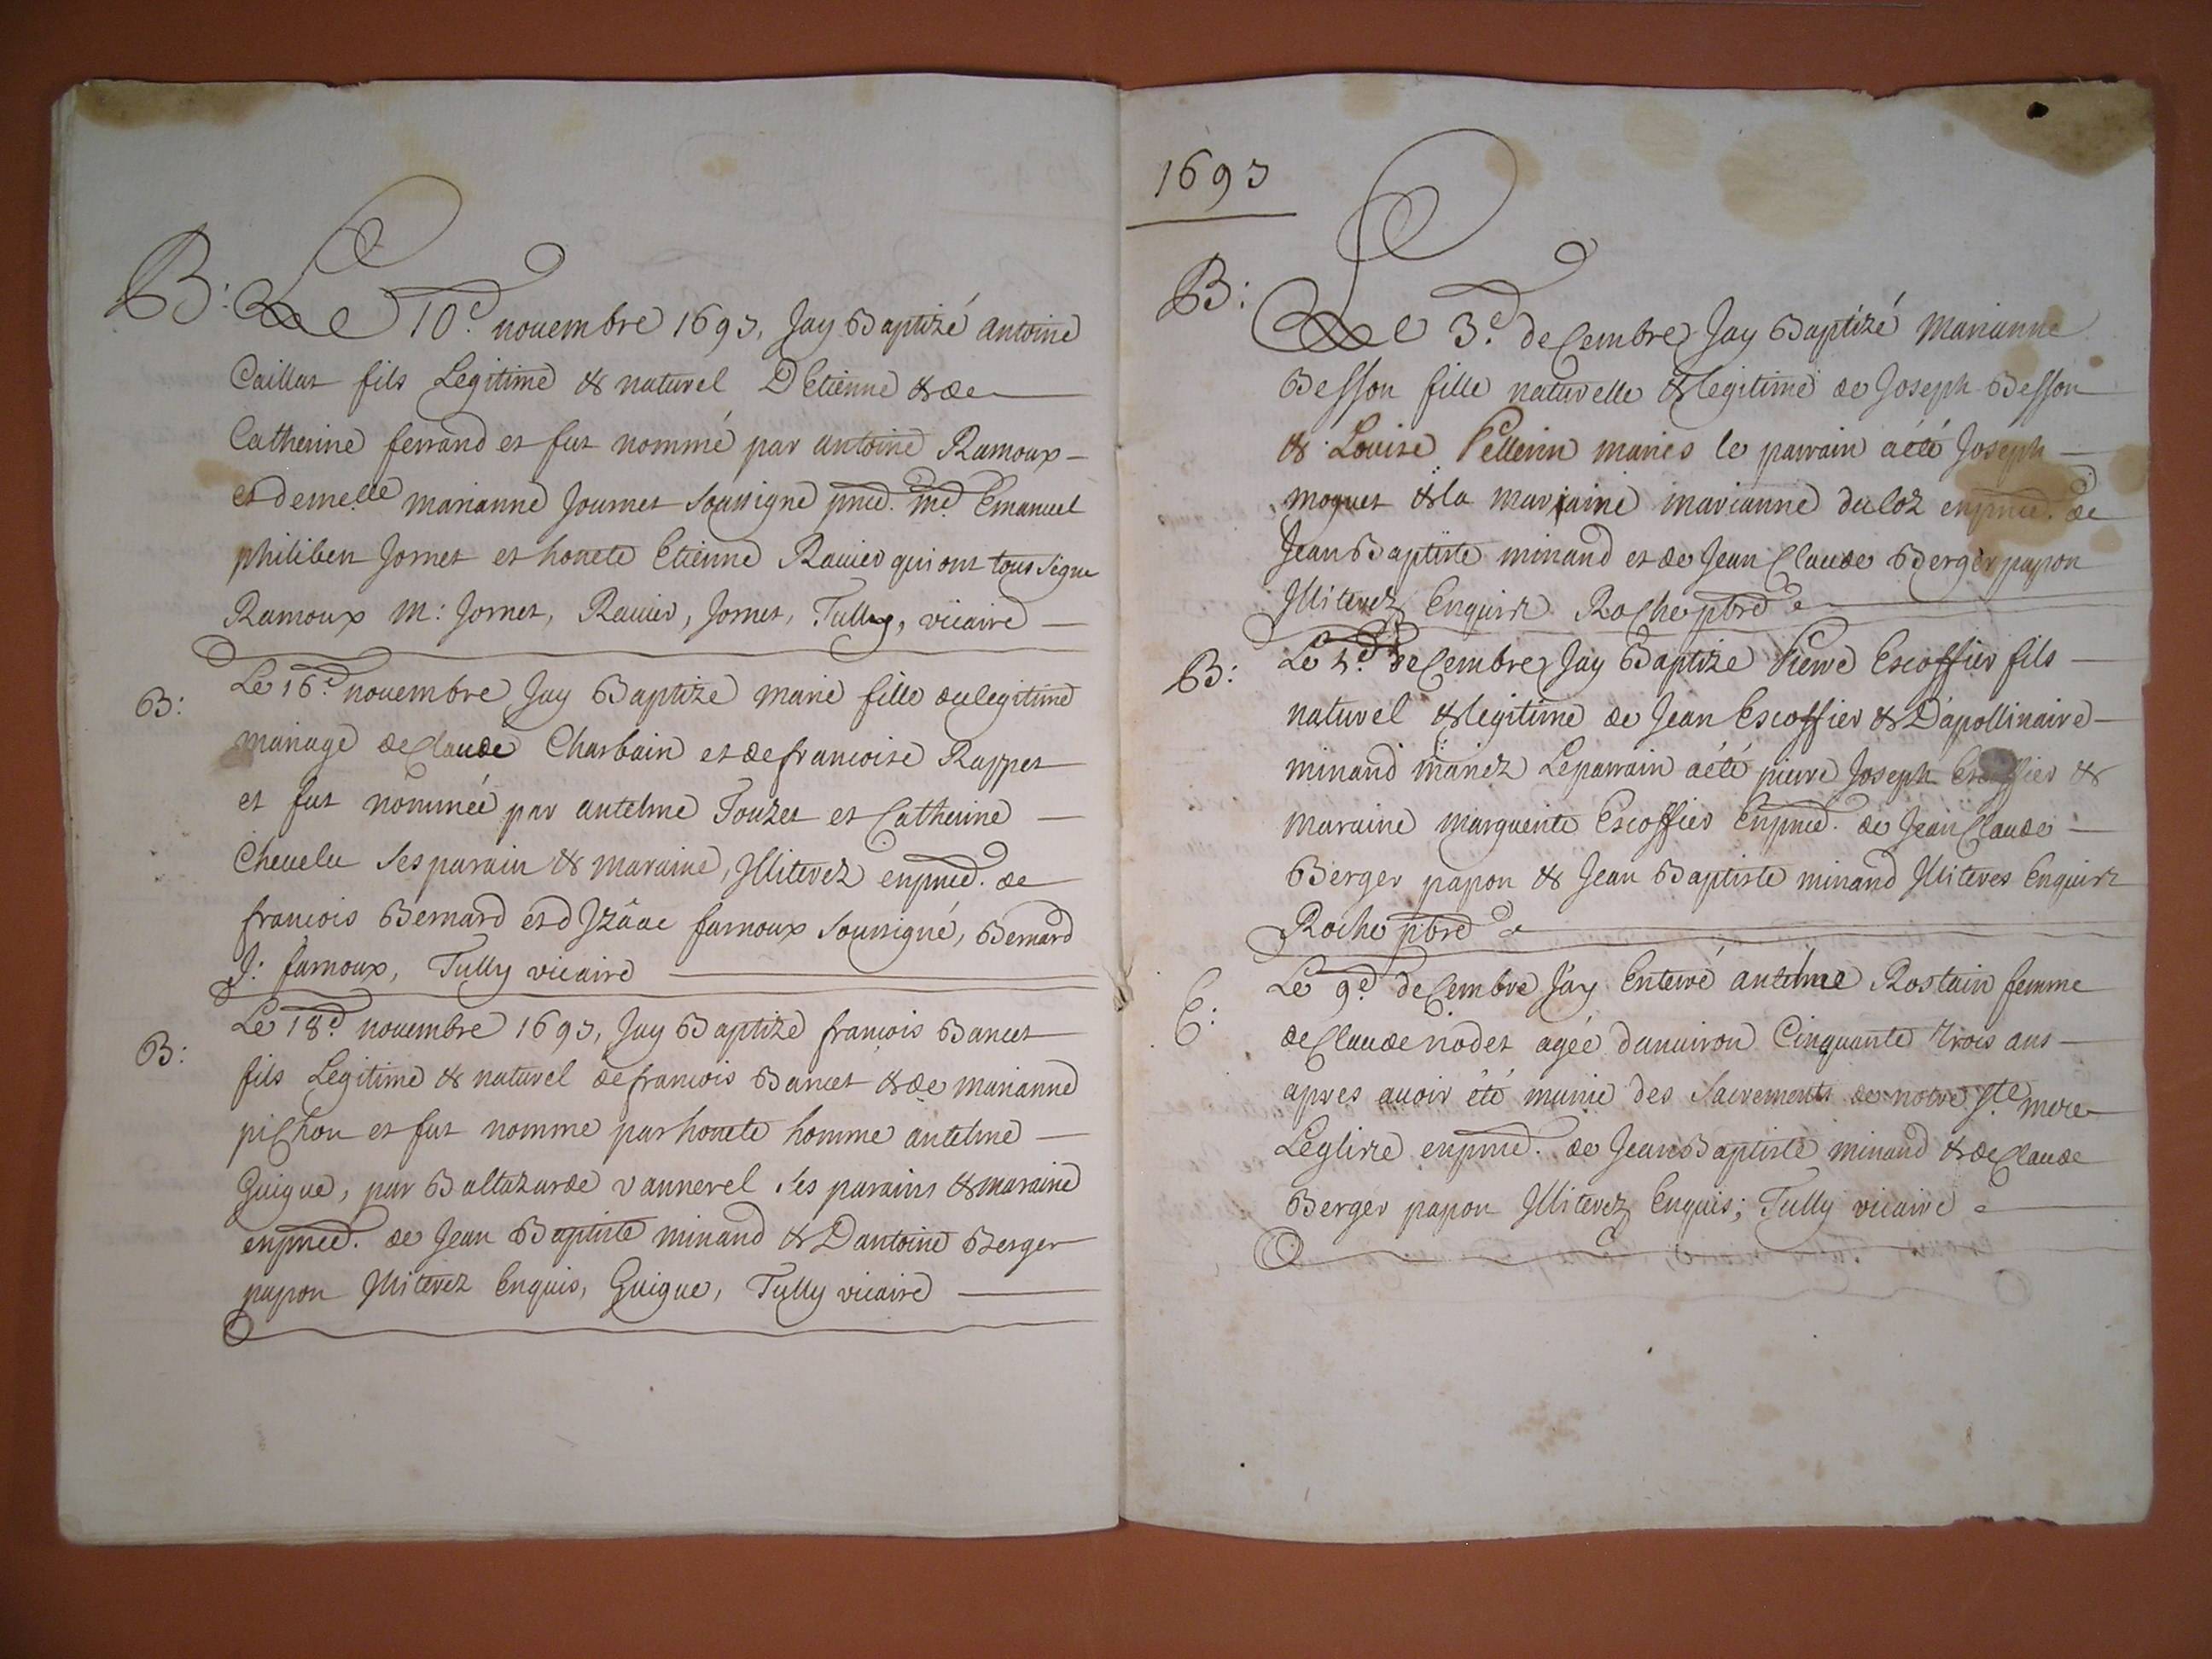 B: Le 10e. nouembre 1693, Jay Baptizé antoine
Caillat fils Legitime & naturel D'Etienne & de
Catherine ferrand et fut nommé par antoine Ramoux
et demelle marianne Journet soussigne pnce. me. Emanuel
philibert Jornet et honete Etienne Rauier qui ont tous signe
Ramoux M: Jornet, Rauier, Jornet, Tully, vicaire
B: Le 16e. nouembre Jay Baptize marie fille du legitime
mariage de Claude Charbain et de francoise Rappet
et fut nommée par antelme Touzet et Catherine
Cheuelu ses parain & maraine, Jlliterez enpnce. de
francois Bernard et d Jzâac farnoux soussigné, Bernard
J: farnoux, Tully vicaire
B: Le 18e. nouembre 1693, Jay Baptize francois Bancet
fils Legitime & naturel de francois Bancet & de marianne
pichon et fut nomme par honete homme antelme
Guigue, par Baltazarde vannerel ses parains & maraine
enpnce. de Jean Baptiste minand & D'antoine Berger
papon Jlliterez Enquis, Guigue, Tully vicaire
1693
B: Le 3e. decembre Jay Baptizé Marianne
Besson fille naturelle & legitime de Joseph Besson
& Louise Pellerin maries le parrain a été Joseph
moquet & la marraine marianne duloz enpnce. de
Jean Baptiste minand et de Jean Claude Berger papon
Jlliterez Enquist Roche pbre
B: Le decembre Jay Baptize Pierre Escoffier fils
naturel & legitime de Jean Escoffier & D'apollinaire
minand mariez Le parrain a été pierre Joseph Escoffier &
maraine marguerite Escoffier Enpnce. de Jean Claude
Berger papon & Jean Baptiste minand Jlliteres Enquist
Roche pbre
E: Le 9e. decembre J'ay Enterré antelme Rostain femme
de Claude nodet agée d'anuiron Cinquante trois ans
apres auoir été munie des sacrements de notre ste mere
Leglise enpnce. de Jean Baptiste minand & de Claude
Berger papon Jlliterez Enquis; Tully vicaire